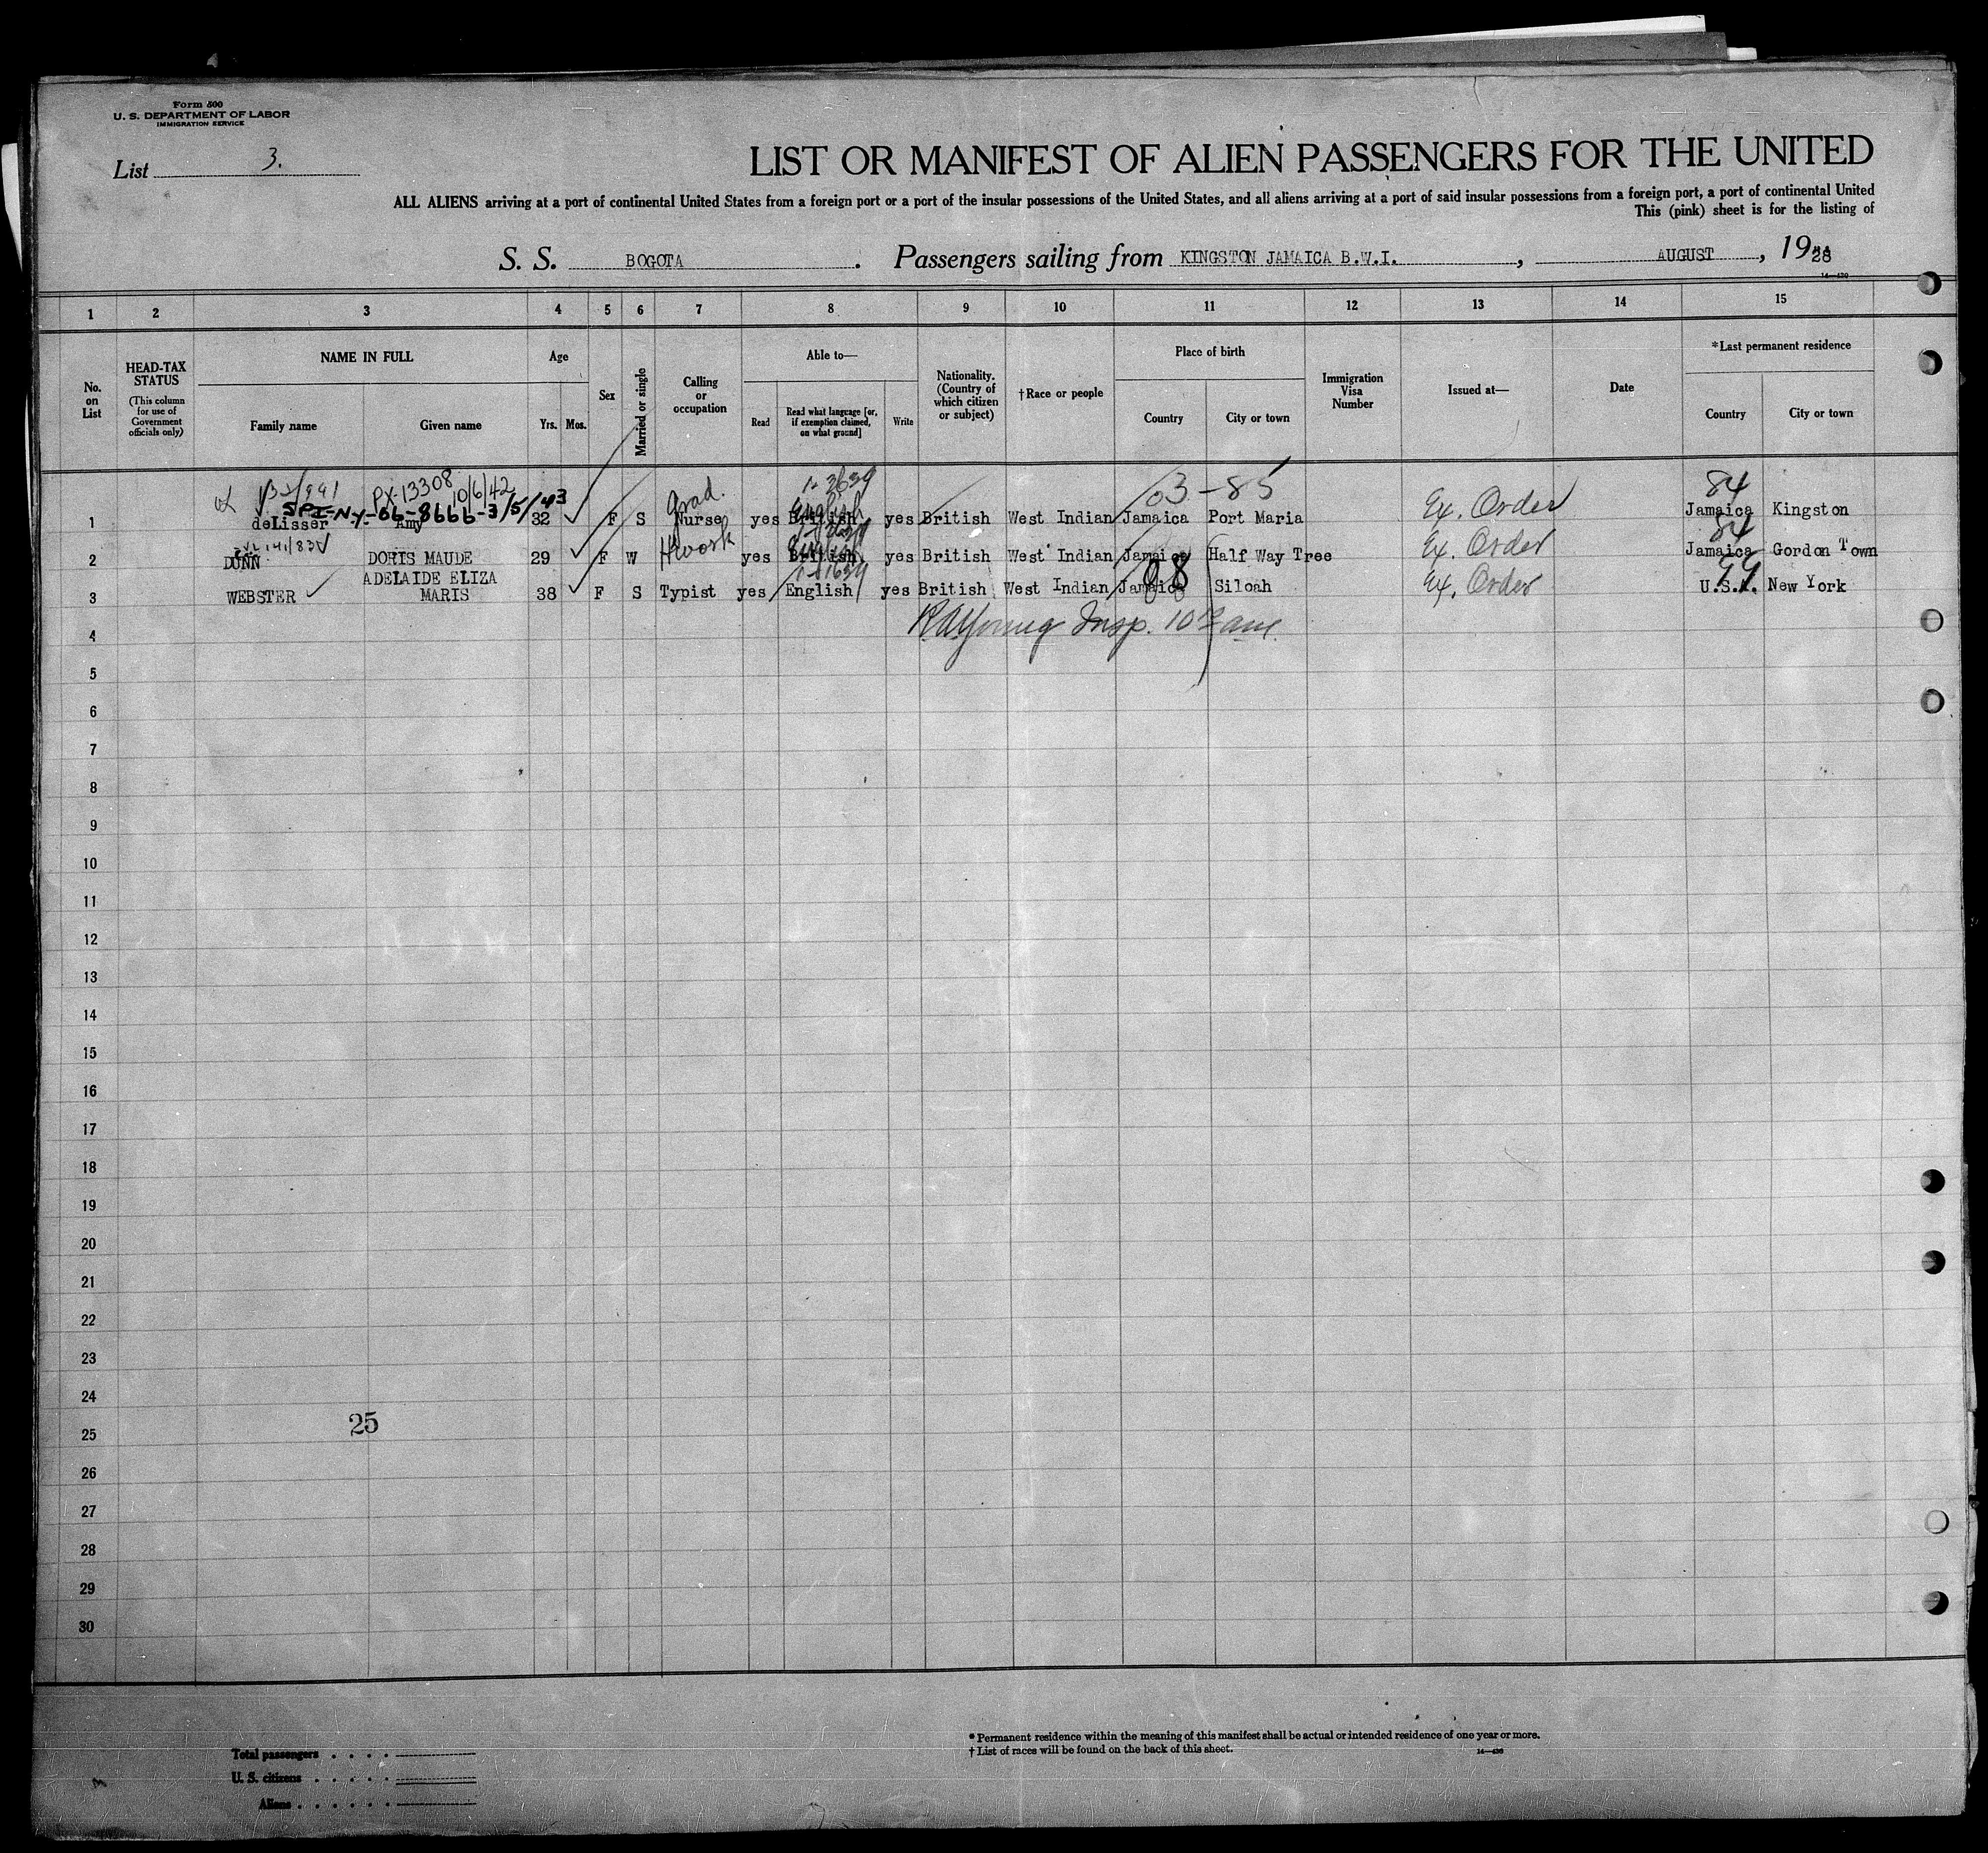 Form 500
U. S. DEPARTMENT OF LABOR
IMMIGRATION SERVICE
List 3.
LIST OR MANIFEST OF ALIEN PASSENGERS FOR THE UNITED
ALL ALIENS arriving at a port of continental United States from a foreign port or a port of the insular possessions of the United States, and all aliens arriving at a port of said insular possessions from a foreign port, a port of continental United
This (pink) sheet is for the listing of
S. S. BOGOTA. Passengers sailing from KINGSTON JAMAICA B.W.I., AUGUST, 1928
14—430
1 2 3 4 5 6 7 8 9 10 11 12 13 14 15
No. on List
HEAD-TAX STATUS
(This column for use of Government officials only)
NAME IN FULL
Family name Given name
Age
Yrs. Mos.
Sex
Married or single
Calling or occupation
Able to—
Read Read what language [or, if exemption claimed, on what ground] Write
Nationality. (Country of which citizen or subject)
†Race or people
Place of birth
Country City or town
Immigration Visa Number
Issued at—
Date
*Last permanent residence
Country City or town
PX-13308 10/6/42 grad. 1-2639 03-85 84
SPI-N.Y.-06-8666-3/5/43 English
1 deLisser Amy 32 F S Nurse yes British yes British West Indian Jamaica Port Maria Ex. Order Jamaica Kingston
141/83 Hwork English 84
2 DUNN DORIS MAUDE 29 F W yes British yes British West Indian Jamaica Half Way Tree Ex. Order Jamaica Gordon Town
ADELAIDE ELIZA 08 99
3 WEBSTER MARIS 38 F S Typist yes English yes British West Indian Jamaica Siloah Ex. Order U.S.A. New York
4 RA Young Insp. 10 am.
5
6
7
8
9
10
11
12
13
14
15
16
17
18
19
20
21
22
23
24
25 25
26
27
28
29
30
* Permanent residence within the meaning of this manifest shall be actual or intended residence of one year or more.
† List of races will be found on the back of this sheet.
14—430
Total passengers . . . .
U. S. citizens . . . . .
Aliens . . . . . .